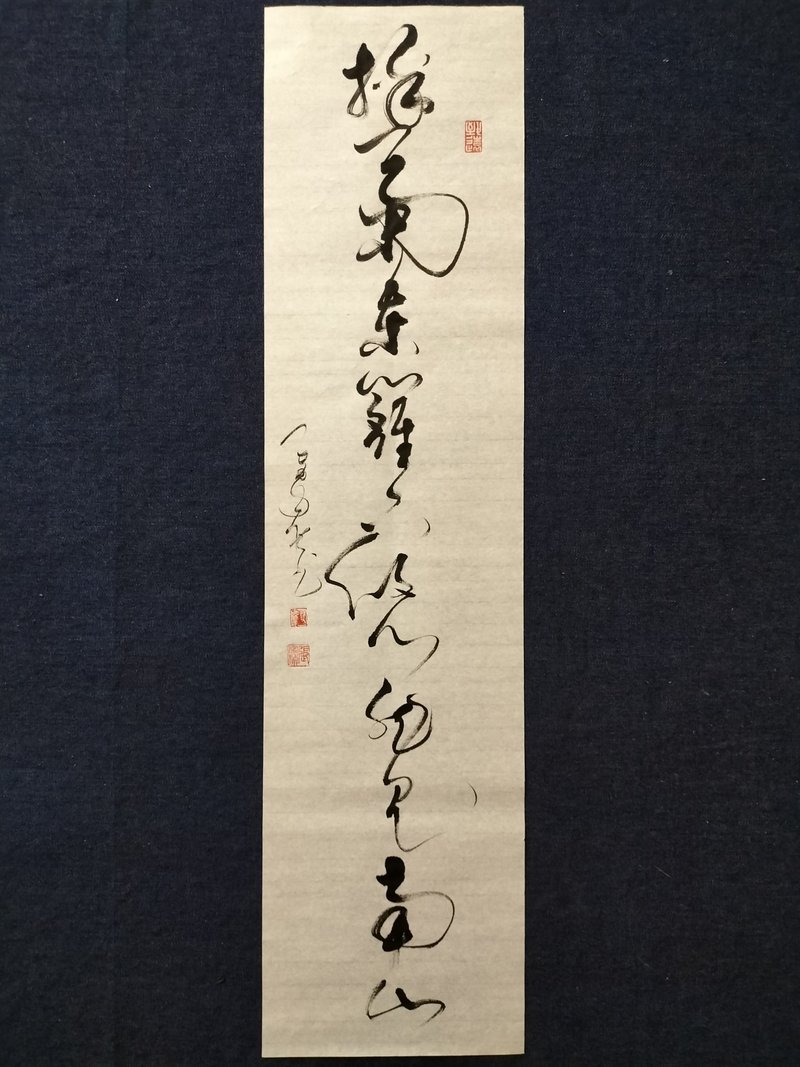 採菊東籬下悠然見南山